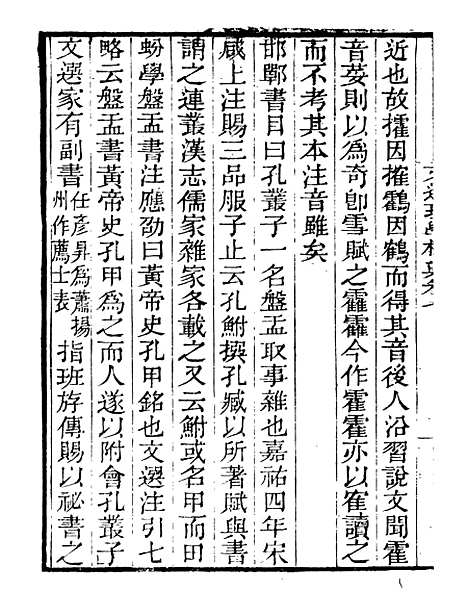 近也故㩁因搉鸖因鶴而得其音後人沿習說文聞霍
音荽則以爲奇卽雪賦之靃靃今作霍霍亦以寉讀之
而不考其本注音雖矣
邯鄲書目曰孔叢子一名盤盂取事雜也嘉祐四年宋
咸上注賜三品服子止云孔鮒撰孔臧以所著賦與書
謂之連叢漢志儒家雜家各載之又云鮒或名甲而田
蚡學盤盂書注應劭曰黃帝史孔甲銘也文選注引七
略云盤盂書黃帝史孔甲爲之而人遂以附會孔叢子
文選家有副書任彥昇爲蕭揚州作薦士表指班斿傳賜以祕書之